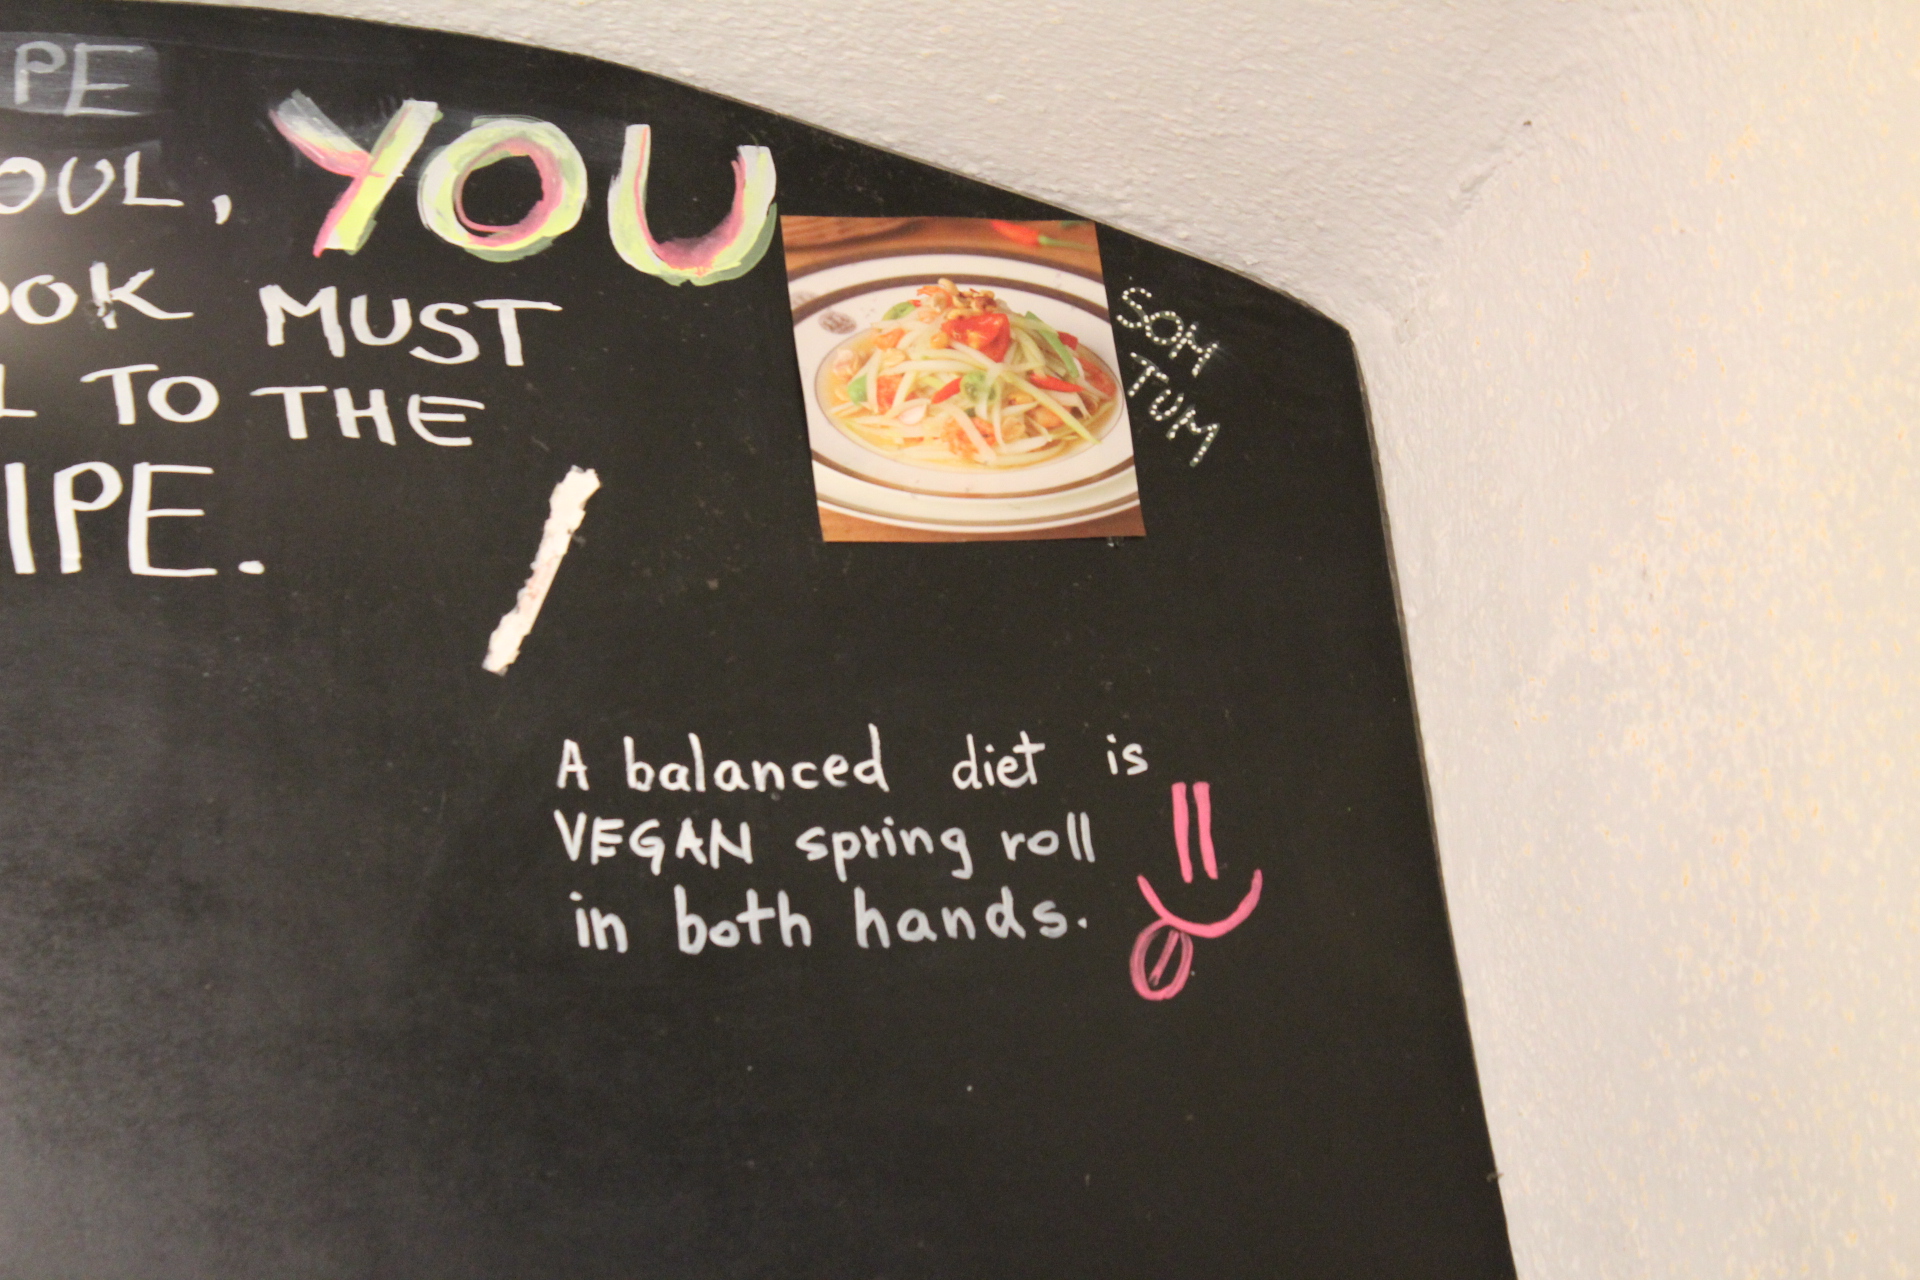 PE
OUL, YOU
OOK MUST
L TO THE
IPE.
SOM
TUM
A balanced diet is
VEGAN spring roll
in both hands.